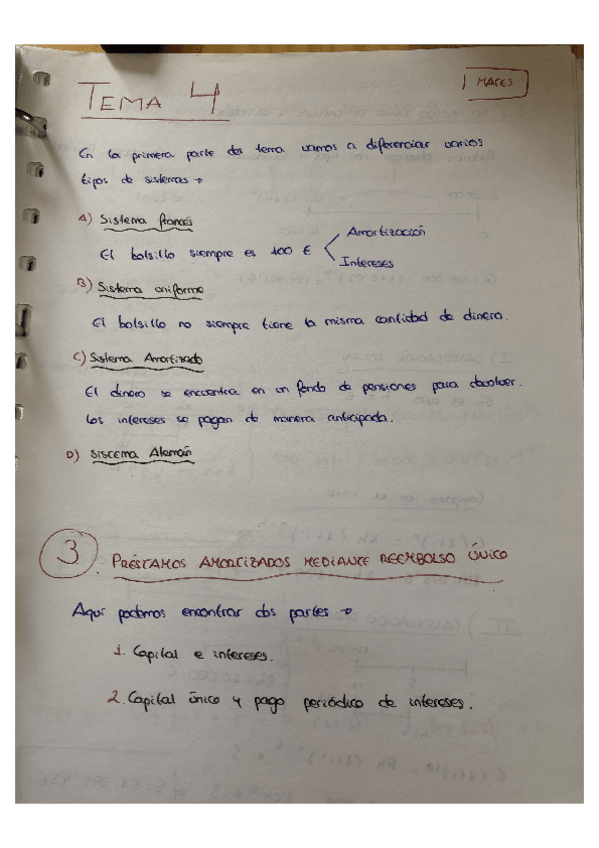 TEMA 4
MATES
En la primera parte del tema vamos a diferenciar varios
tipos de sistemas →
A) Sistema francés
El bolsillo siempre es 100 € Amortización
Intereses
B) Sistema uniforme
El bolsillo no siempre tiene la misma cantidad de dinero.
C) Sistema Amortizado
El dinero se encuentra en un fondo de pensiones para devolver.
Los intereses se pagan de manera anticipada.
D) Sistema Alemán
3. PRÉSTAMOS AMORTIZADOS MEDIANTE REEMBOLSO ÚNICO
Aquí podemos encontrar dos partes →
1. Capital e intereses.
2. Capital único y pago periódico de intereses.